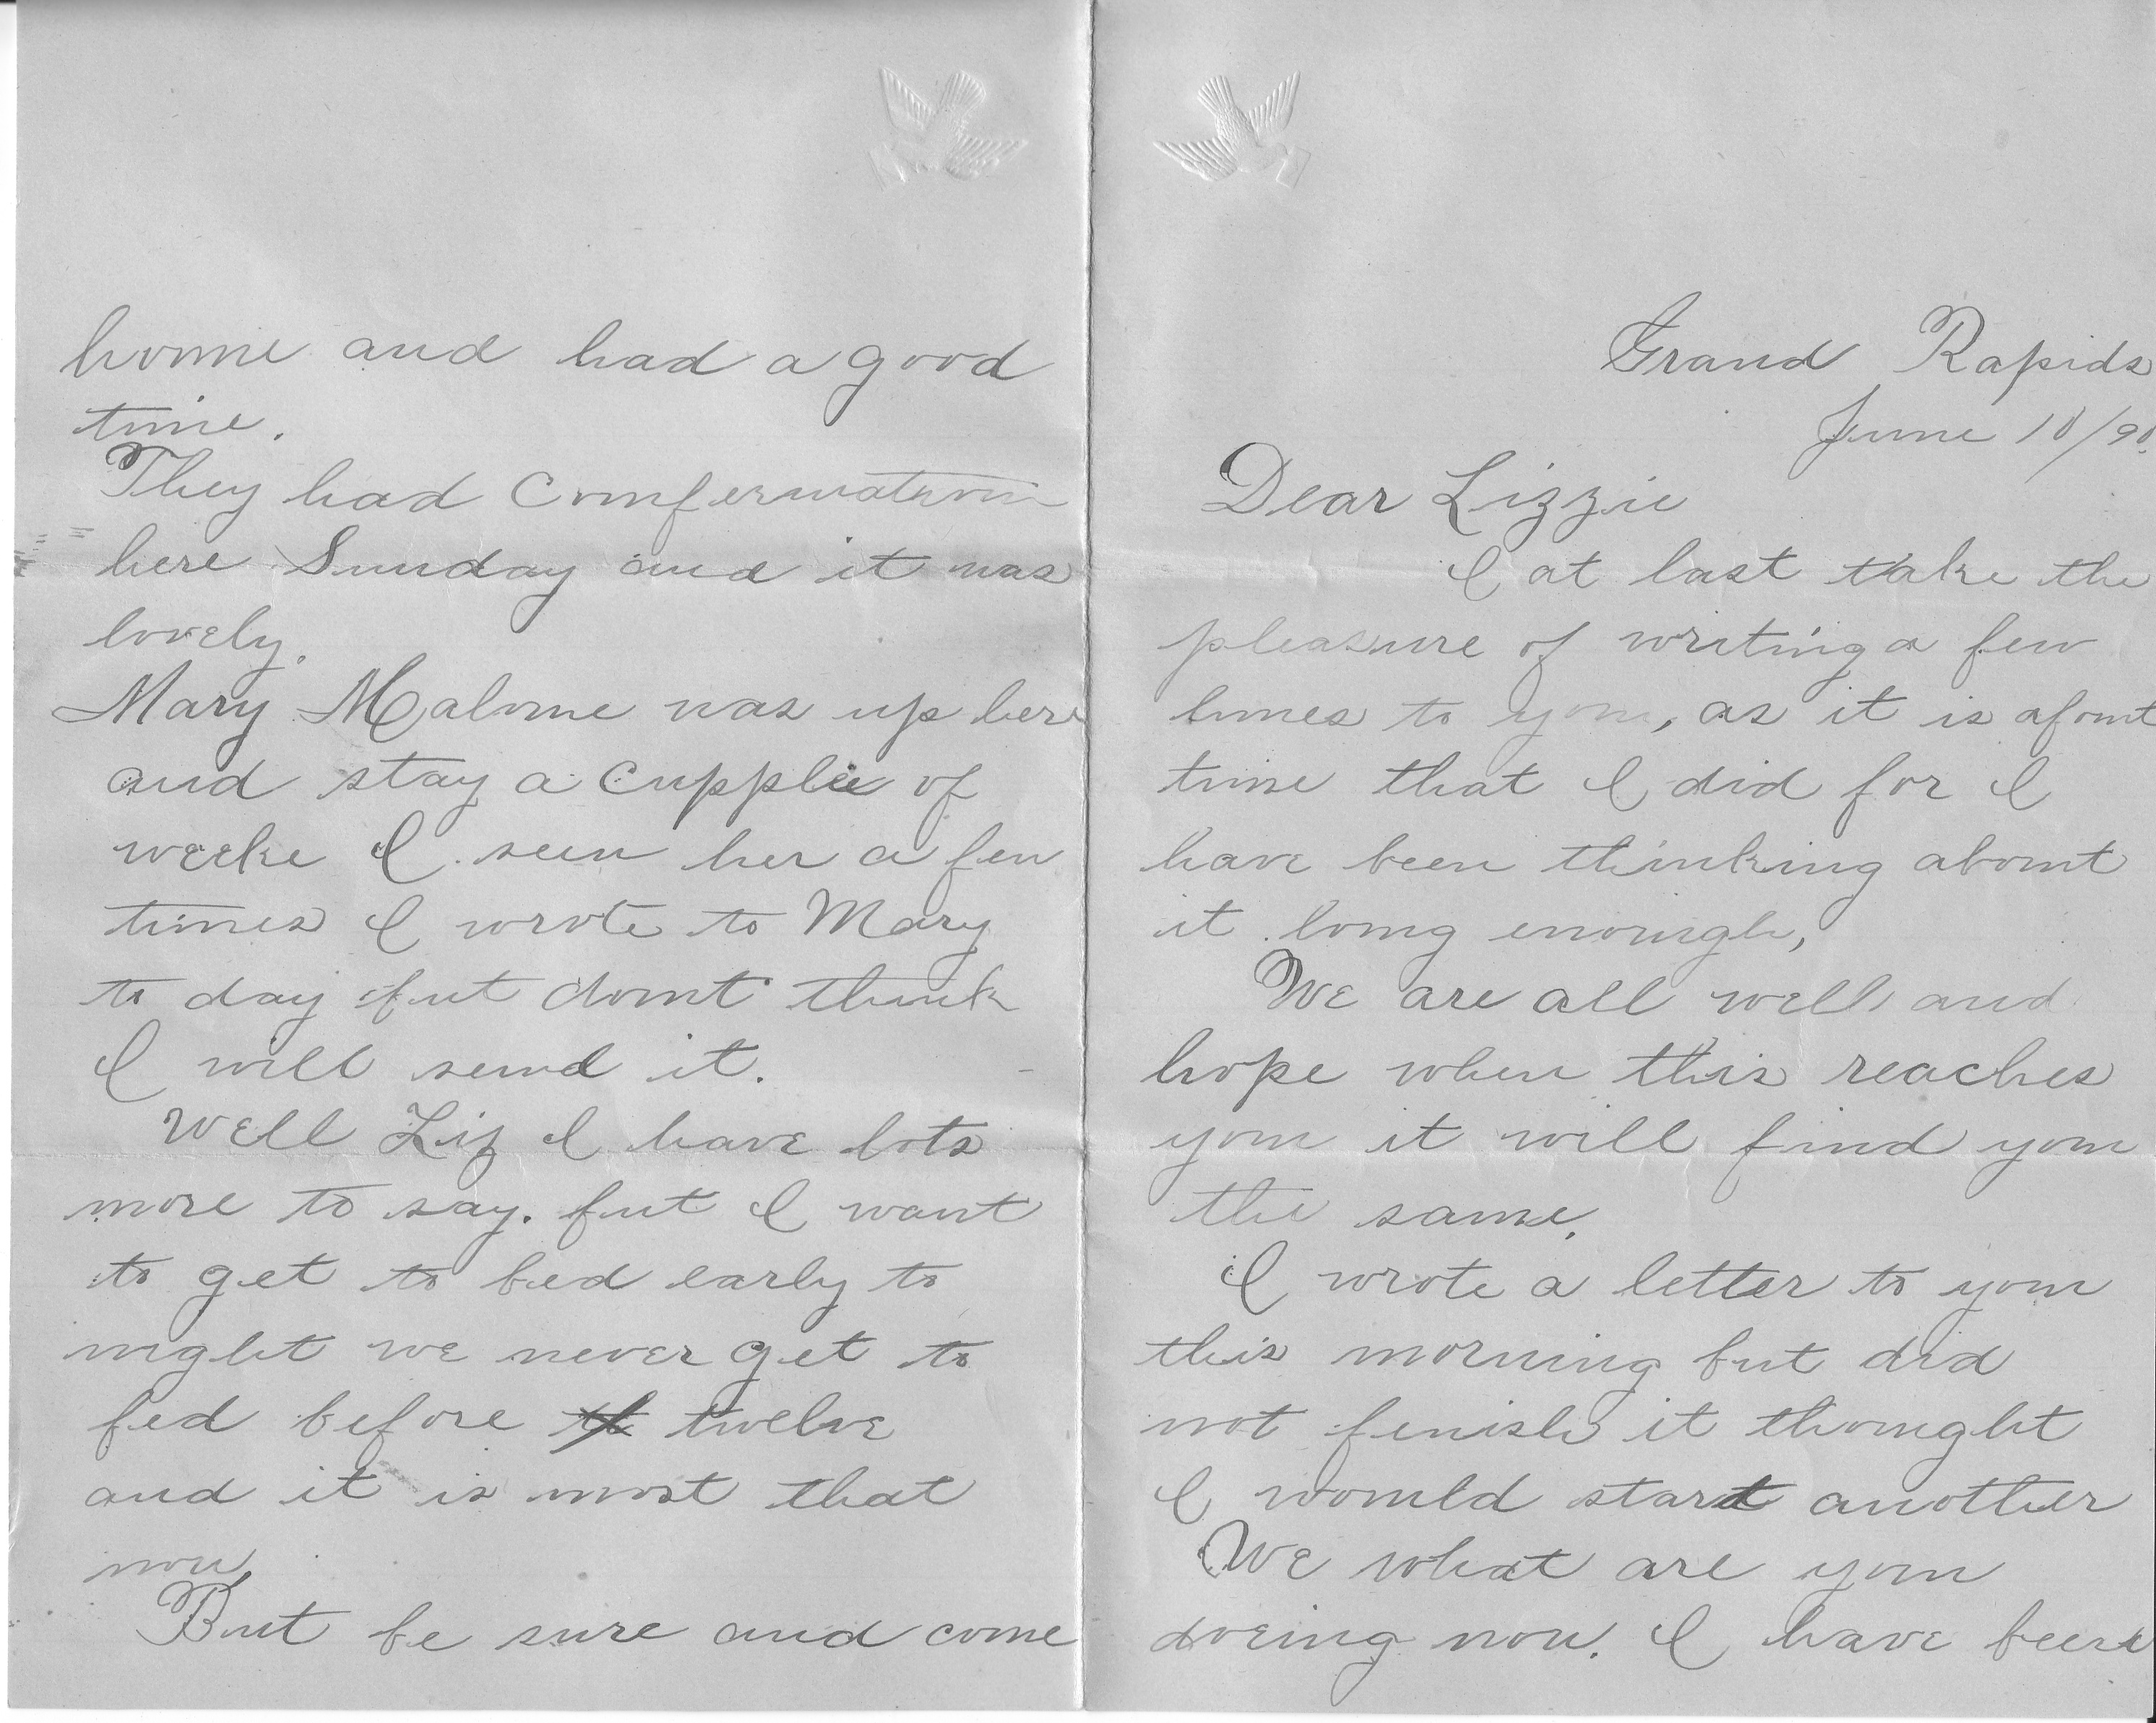 Grand Rapids
June 10/90.
Dear Lizzie
I at last take the
pleasure of writing a few
lines to you, as it is about
time that I did for I
have been thinking about
it long enough,
We are all well and
hope when this reaches
you it will find you
the same.
I wrote a letter to you
this morning but did
not fenish it thought
I would start another
We what are you
doeing now. I have been
home and had a good
time.
They had Confermation
here Sunday and it was
lovely.
Mary Malone was up here
and stay a cupple of
weeke I seen her a few
times I wrote to Mary
to day but dont think
I will send it.
Well Liz I have lots
more to say. but I want
to get to bed early to
night we never get to
bed before twelve
and it is most that
now,
But be sure and come